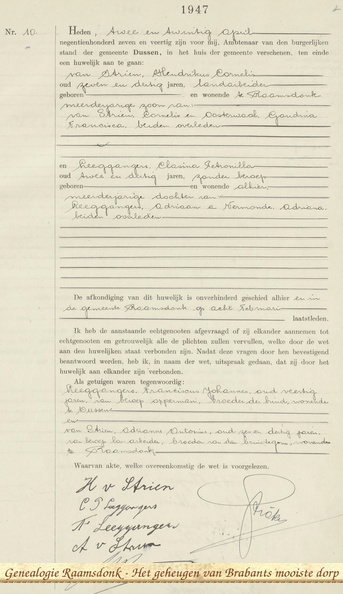 1947
Nr. 10.
Heden, twee en twintig april
negentienhonderd zeven en veertig zijn voor mij, Ambtenaar van den burgerlijken
stand der gemeente Dussen, in het huis der gemeente verschenen, ten einde
een huwelijk aan te gaan:
van Strien, Hendrikus Cornelis
oud zeven en dertig jaren, landarbeider
geboren en wonende te Raamsdonk
meerderjarige zoon van
van Strien Cornelis en Goudina
Francisca, beiden overleden
en Leeggangers, Clasina Petronilla
oud twee en dertig jaren, zonder beroep
geboren en wonende alhier,
meerderjarige dochter van
Leeggangers, Adriaan en Adriana
beiden overleden
De afkondiging van dit huwelijk is onverhinderd geschied alhier en in
de gemeente Raamsdonk op acht Februari
laatstleden.
Ik heb de aanstaande echtgenooten afgevraagd of zij elkander aannemen tot
echtgenooten en getrouwelijk alle de plichten zullen vervullen, welke door de wet
aan den huwelijken staat verbonden zijn. Nadat deze vragen door hen bevestigend
beantwoord werden, heb ik, in naam der wet, uitspraak gedaan, dat zij door het
huwelijk aan elkander zijn verbonden.
Als getuigen waren tegenwoordig:
Leeggangers, Franciscus Johannes, oud veertig
jaren, van beroep opperman, broeder der bruid, wonende
te Dussen
en
van Strien, Adrianus Antonius, oud en dertig jaren,
van beroep arbeider, broeder van de bruidegom, wonende
te Raamsdonk
Waarvan akte, welke overeenkomstig de wet is voorgelezen.
H v Strien
C P Leeggangers
Fr Leeggangers
A v Strien
Genealogie Raamsdonk - Het geheugen van Brabants mooiste dorp